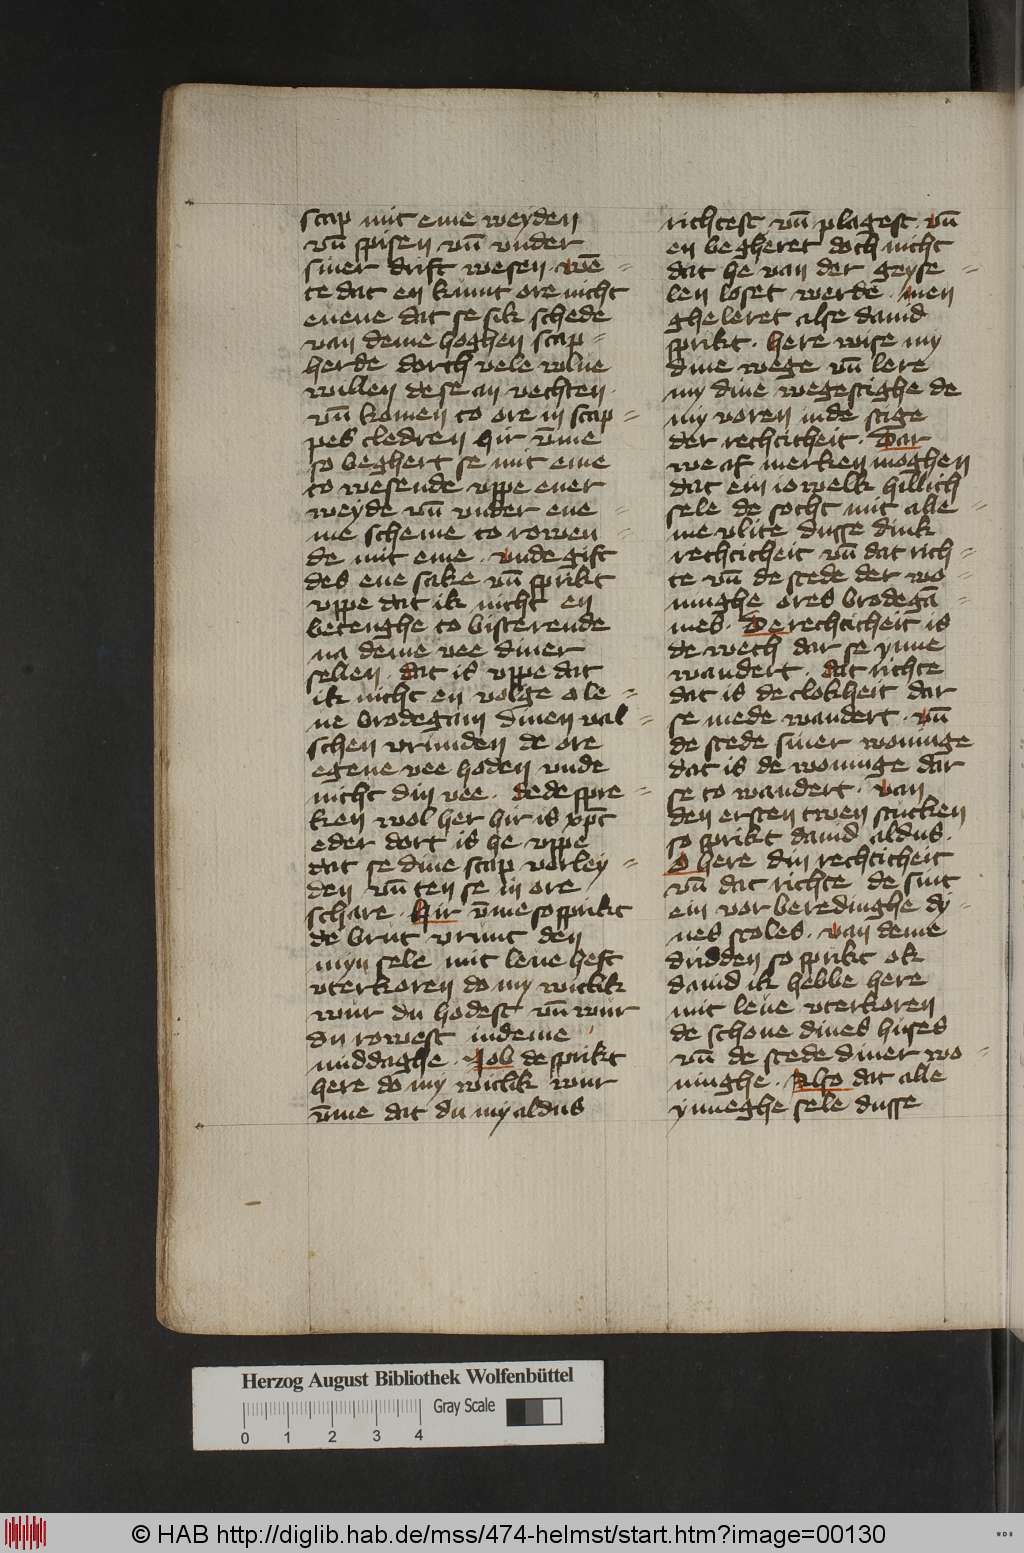 scap mit eme weyden
vn̄ spisen vn̄ vnder
siner drift wesen. wē=
te dat en kumt ore nicht
euene dat se sik schede
van deme hoghen scap=
herde dorch vele wlue
willen de se an vechten.
vn̄ komen to ore in scap=
pes cledren hir v̄me
so beghert se mit eme
to wesende vppe ener
weyde vn̄ vnder ene=
me scheme to rowen=
de mit eme. vnde gift
des ene sake vn̄ sprikt
vppe dat ik nicht en
betenghe to bisterende
na deme vee diner
sellen. dat is vppe dat
ik nicht en volge o le=
ue brodegam dinen val=
schen vrunden de ore
egene vee hoden vnde
nicht din vee. de de spre=
ken wol her hir is xp̄c
eder dort is he vppe
dat se dine scap vorley=
den vn̄ ten se in ore
schare. Hir v̄me so sprikt
de brut vrunt den
myn sele mit leue heft
vterkoren do my witlik
wur du hodest vn̄ wur
du rowest in deme
middaghe. Job de sprikt
here do my witlik wur
v̄me dat du my aldus
richtest vn̄ plagest. vn̄
en begheret doch nicht
dat he van der geyse=
len loset werde. men
gheleret alse dauid
sprikt. here wise my
dine wege vn̄ lere
my dine wegestighe de
my voren in de stige
der rechticheit. Dar
we af merken moghen
dat ein iowelk hillich
sele de socht mit alle=
me vlite dusse dink
rechticheit vn̄ dat rich=
te vn̄ de stede der wo=
ninghe ores brodegā=
mes. De rechticheit is
de wech dar se ynne
wandert. dat richte
dat is de clokheit dar
se mede wandert. vn̄
de stede siner woninge
dat is de woninge dar
se to wandert. van
den ersten twen stucken
so sprikt dauid aldus.
O here din rechticheit
vn̄ dat richte de sint
ein vorberedinghe dy=
nes stoles. van deme
drudden so sprikt ok
dauid ik hebbe here
mit leue vterkoren
de schone dines huses
vn̄ de stede diner wo=
ninghe. Also dat alle
ynneghe sele dusse
Herzog August Bibliothek Wolfenbüttel
Gray Scale
0 1 2 3 4
© HAB http://diglib.hab.de/mss/474-helmst/start.htm?image=00130